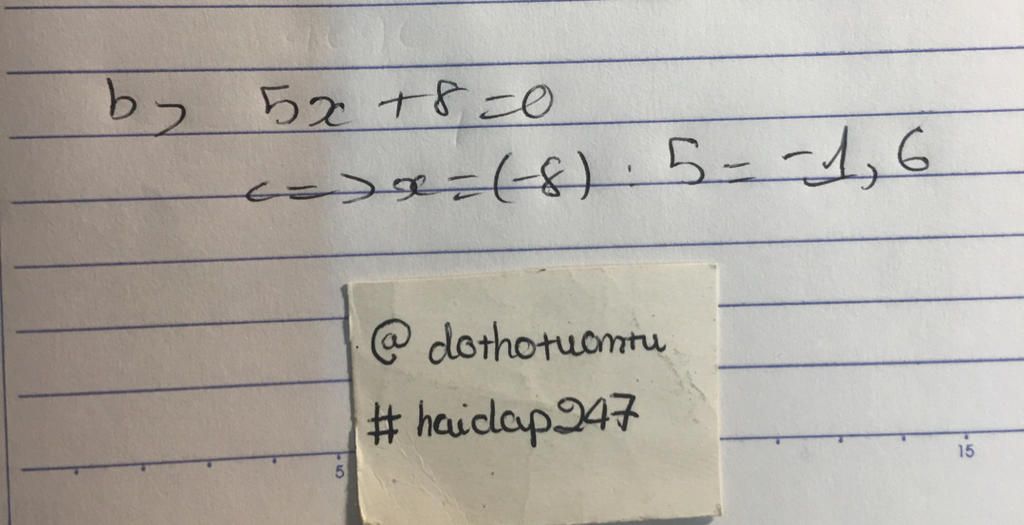 b> 5x + 8 = 0
<=> x = (-8) : 5 = -1,6
@ dothotuomtu
# haidap247
5
15